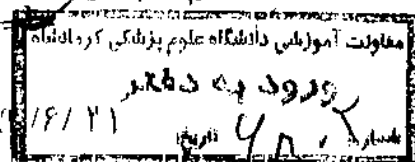 معاونت آموزشی دانشگاه علوم پزشکی کرمانشاه
ورود به دفتر
/۶/۳۱ تاریخ شماره